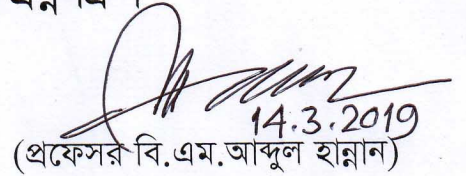 14.3.2019
(প্রফেসর বি.এম.আব্দুল হান্নান)